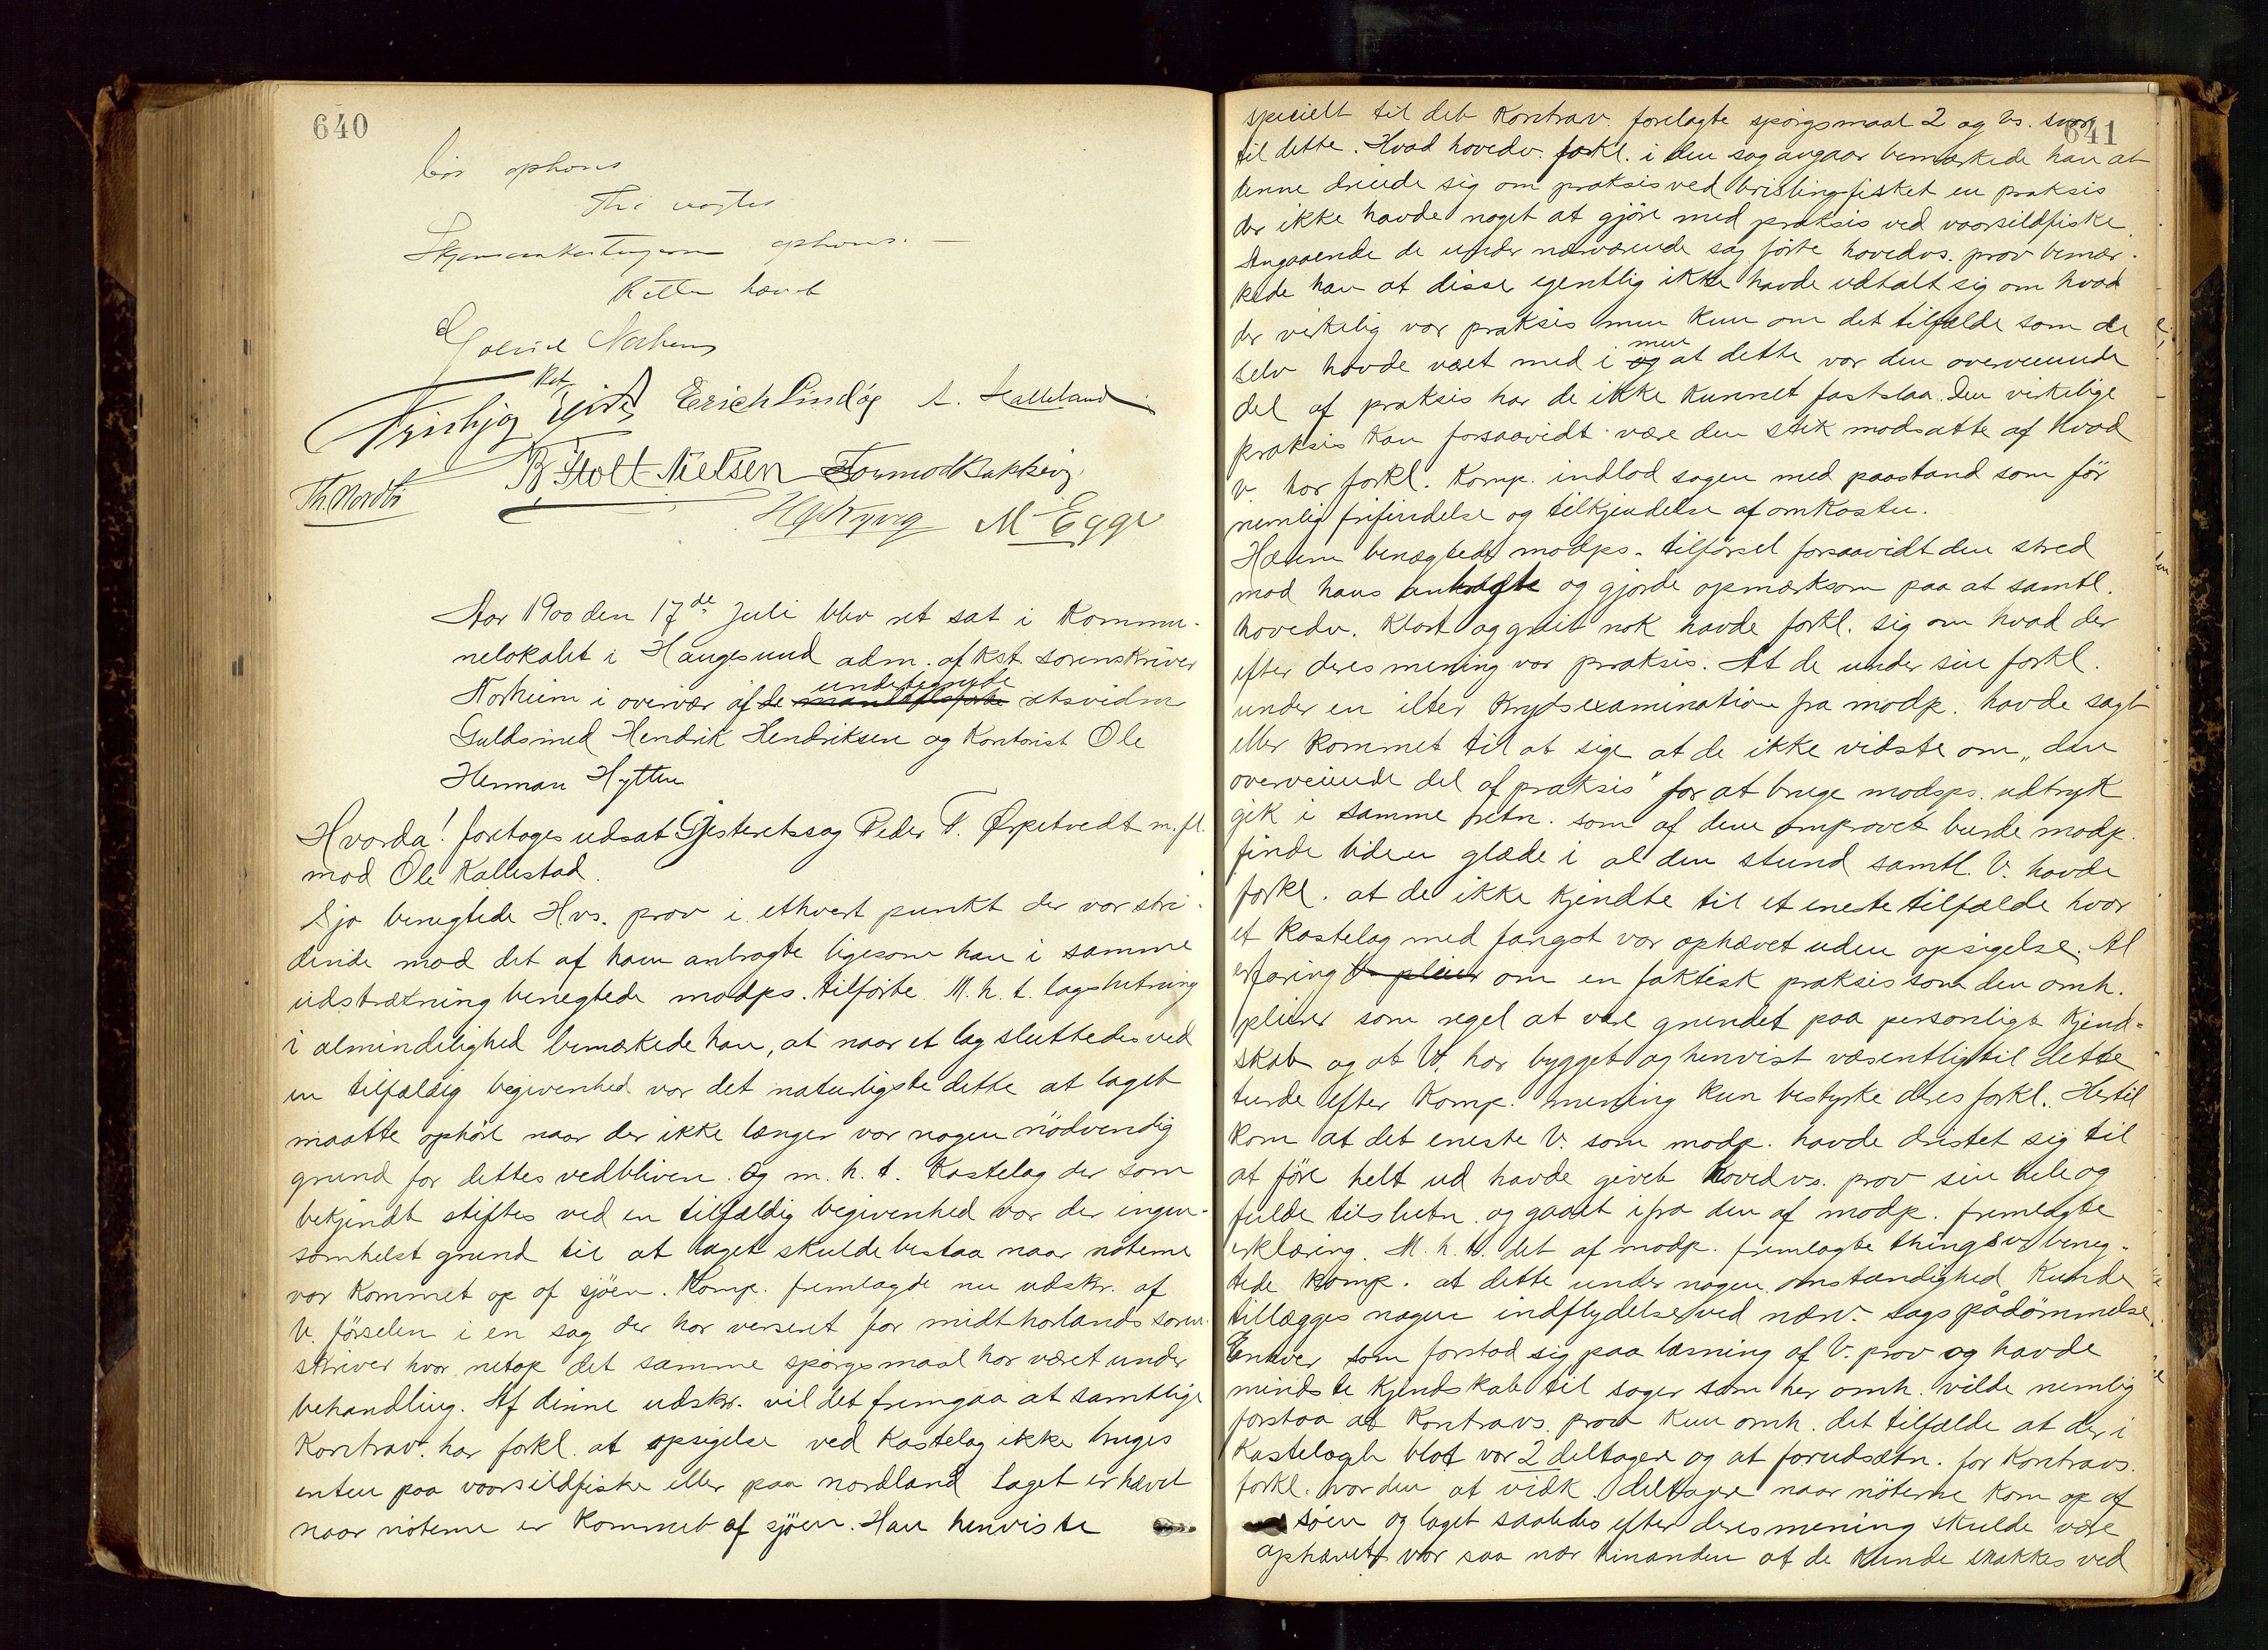 640
bør ophøres
Thi vagtes
Skjønsankestningerne ophøres. –
Retten hævet
Gabriel Norheim
Erich Lindøe A. Halleland
Th. Nordbø B Stolt-Nielsen Tormod Bakkevig
M Egge
Aar 1900 den 17de Juli blev ret sat i Kommu-
nelokalet i Haugesund adm. af kst. sorenskriver
Norheim i overvær af de undertegnede retsvidner
Guldsmed Hendrik Hendriksen og Kontorist Ole
Herman Hytten
Hvorda! foretoges udsat Gjesteretssag Peder T. Ørpetvedt m. fl.
mod Ole Kallestad.
Sjo benegtede H.vs. prov i ethvert punkt der var stri-
dende mod det af ham anbragte ligesom han i samme
udstrækning benegtede modps. tilførte. M. h. t. lagslutning
i almindelighed bemærkede han, at naar et lag sluttedes ved
en tilfældig begivenhed var det naturligste dette at laget
maatte ophøre naar der ikke længer var nogen nödvendig
grund for dettes vedbliven. Og m. h. t. Kastelag der som
bekjendt stiftes ved en tilfældig begivenhed var der ingen-
somhelst grund til at laget skulde bestaa naar nöterne
var kommet op af sjöen. Komp. fremlagde nu udskr. af
V. förselen i en sag der har verseret for midthorlands soren-
skriver hvor netop det samme spörgsmaal har været under
behandling. Af denne udskr. vil det fremgaa at samtlige
Kontrav. har forkl. at opsigelse ved Kastelag ikke bruges
enten paa vaarsildfiske eller paa nordland. Laget er hævet
naar nöterne er kommet af sjöen. Han henviste
641
specielt til det Kontrav. forelagte spörgsmaal 2 og Vs. svar
til dette. Hvad hovedv. forkl. i den sag angaar bemærkede han at
denne dreiede sig om praksis ved brislingfisket en praksis
der ikke havde noget at gjöre med praksis ved vaarsildfiske.
Angaaende de under nærværende sag förte hovedvs. prov bemær-
kede han at disse egentlig ikke havde udtalt sig om hvad
der virkelig var praksis men kun om det tilfælde som de
selv havde været med i og men at dette var den overveiende
del af praksis har de ikke kunnet fastslaa. Den virkelige
praksis kan forsaavidt være den stik modsatte af hvad
v. har forkl. Komp. indlod sagen med paastand som för
nemlig frifindelse og tilkjendelse af omkostn.
Hæim benægtede modps. tilförsel forsaavidt den stred
mod hans anbragte og gjorde opmærksom paa at samtl.
hovedv. klart og greit nok havde forkl. sig om hvad der
efter deres mening var praksis. At de under sin forkl.
under en ilter krydsexamination fra modp. havde sagt
eller kommet til at sige at de ikke vidste om „den
overveiende del af praksis" for at bruge modsps. udtryk
gik i samme retn. som af dem omprovet burde modp.
finde liden glæde i al den stund samtl. V. havde
forkl. at de ikke kjendte til et eneste tilfælde hvor
et kastelag med fangst var ophævet uden opsigelse. Al
erfaring om en faktisk praksis som den omh.
pleier som regel at være grundet paa personligt kjend-
skab og at V. har bygget og henvist væsentlig til dette
turde efter Komp. mening kun bestyrke deres forkl. Hertil
kom at det eneste V. som modp. havde dristet sig til
at före helt ud havde givet hovedvs. prov sin hele og
fulde tilslutn. og gaaet ifra den af modp. fremlagte
erklæring. M. h. t. det af modp. fremlagte thingsv. beneg-
tede komp. at dette under nogen omstændighed kunde
tillægges nogen indflydelse ved nærv. sags pådömmelse.
Enhver som forstod sig paa læsning af V. prov og havde
mindste kjendskab til sager som her omh. vilde nemlig
forstaa at Kontravs. prov kun omh. det tilfælde at der i
Kastelaget blot var 2 deltagere og at forudsætn. for Kontravs.
forkl. var den at vedk. deltagere naar nöterne kom op af
söen og laget saaledes efter deres mening skulde være
ophævet var saa nær hinanden at de kunde snakkes ved